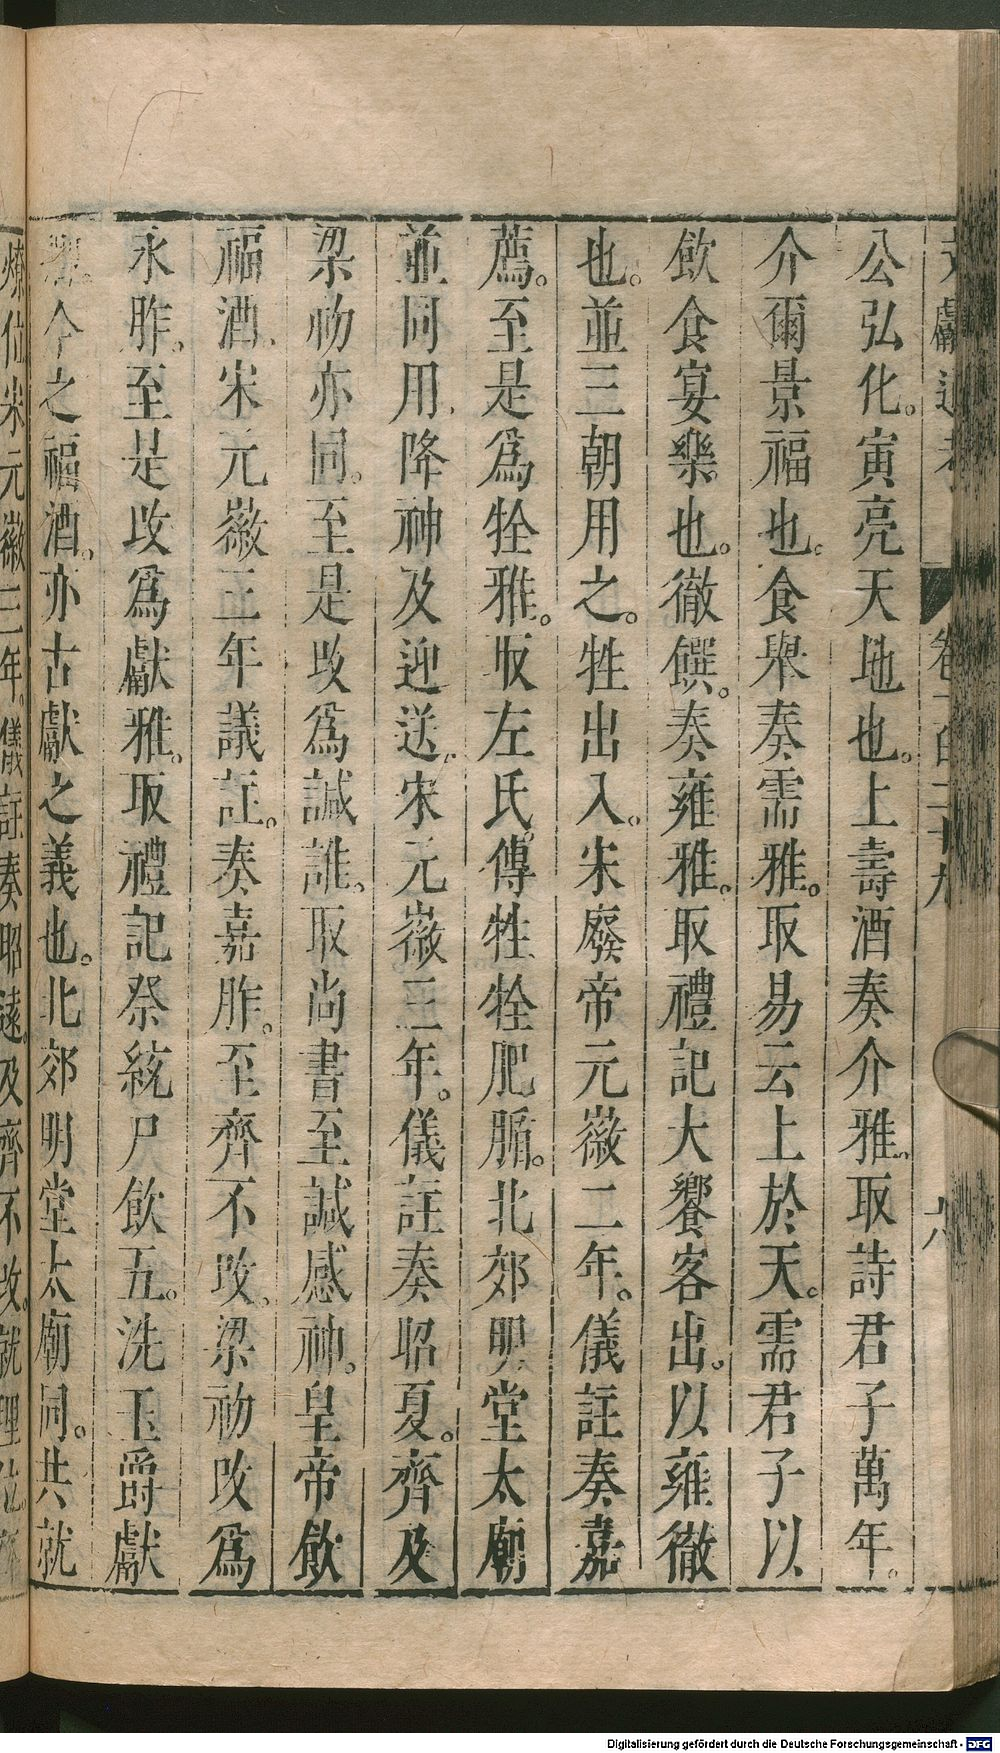 公弘化。寅亮天地也。上壽酒奏介雅。取詩君子萬年。
介爾景福也。食舉奏需雅。取易云上於天。需君子以
飲食宴樂也。徹饌。奏雍雅。取禮記大饗客出。以雍徹
也。並三朝用之。牲出入。宋廢帝元徽二年。儀註奏嘉
薦。至是爲牷雅。取左氏傳牲牷肥腯。北郊明堂太廟
並同用。降神及迎送。宋元徽三年。儀註奏昭夏。齊及
梁初亦同。至是改爲諴雅。取尚書至諴感神。皇帝飲
福酒。宋元徽三年議註。奏嘉胙。至齊不改。梁初改爲
永胙。至是改爲獻雅。取禮記祭統尸飲五。洗玉爵獻
今之福酒。亦古獻之義也。北郊明堂太廟同。共就
燎位宋元徽三年。儀註奏昭遠。及齊不改。就理位
卷一百二十九
Digitalisierung gefördert durch die Deutsche Forschungsgemeinschaft - DFG